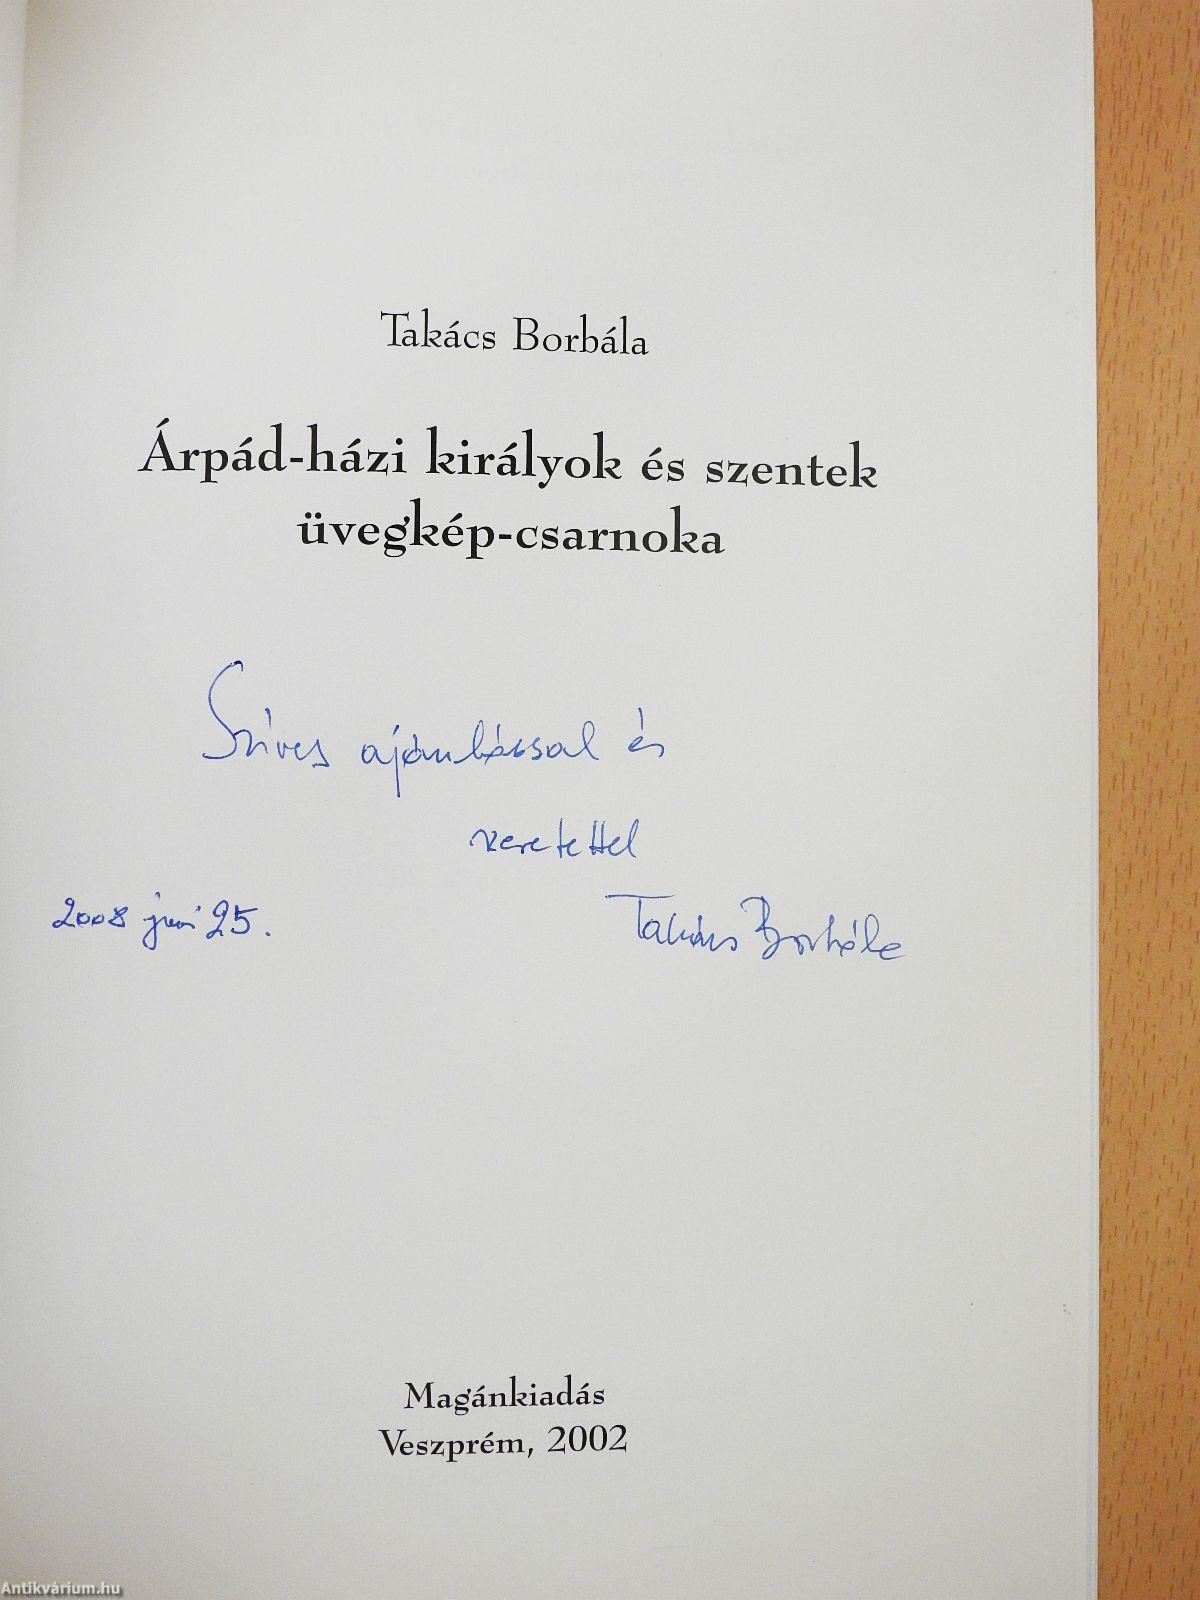 Takács Borbála
Árpád-házi királyok és szentek
üvegkép-csarnoka
Szíves ajánlással és
szeretettel
2008 juni 25.
Takács Borbála
Magánkiadás
Veszprém, 2002
Antikvárium.hu